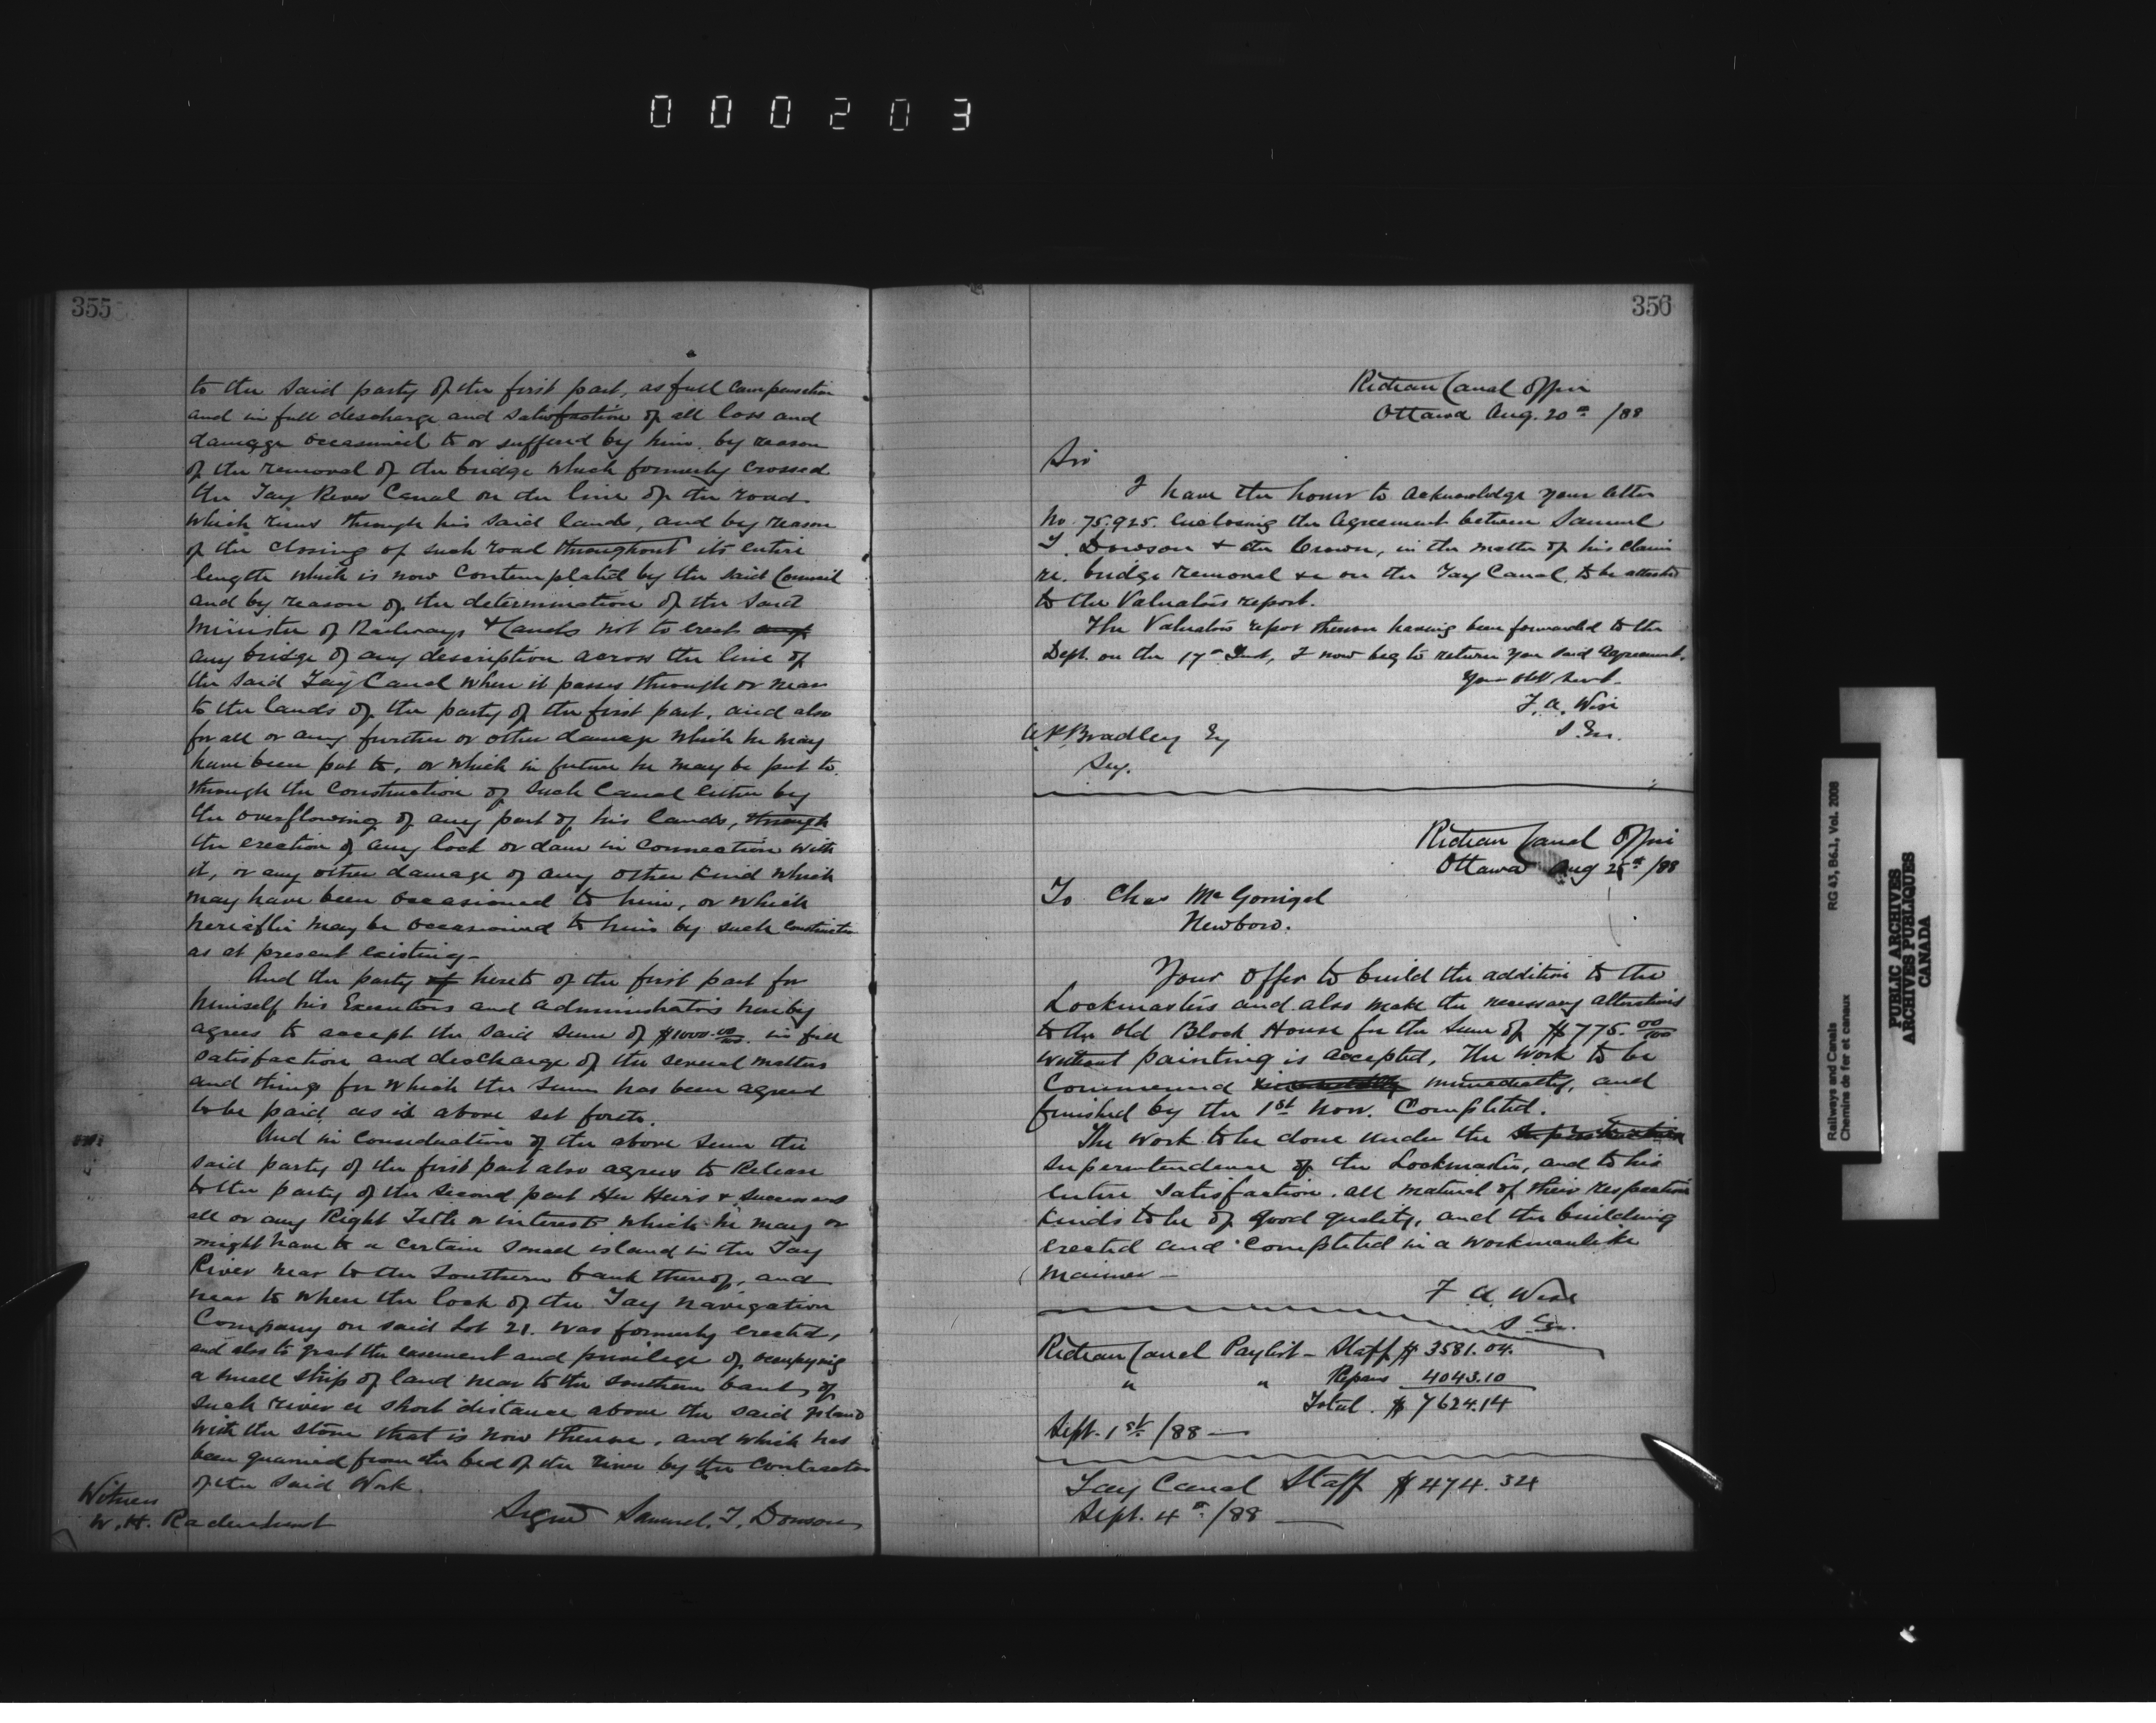 000203
355
to the said party of the first part, as full compensation
and in full descharge and satisfaction of all loss and
damage occasioned to or suffered by him by reason
of the removal of the bridge which formerly crossed
the Tay River Canal on the line of the road
which runs through his said lands, and by reason
of the closing of such road throughout its entire
length which is now contemplated by the said Council
and by reason of the determination of the said
Minister of Railways & Canals not to erect any
any bridge of any description across the line of
the said Tay Canal when it passes through or near
to the lands of the party of the first part, and also
for all or any further or other damage which he may
have been put to, or which in future he may be put to
through the construction of such Canal either by
the overflowing of any part of his lands, through
the erection of any lock or dam in connection with
it, or any other damage of any other kind which
may have been occasioned to him, or which
hereafter may be occasioned to him by such construction
as at present existing-
And the party of hereto of the first part for
himself his Executors and administrators hereby
agrees to accept the said sum of $1000.00/100 in full
satisfaction and descharge of the several matters
and things for which the sum has been agreed
to be paid as is above set forth.
And in consideration of the above sum the
said party of the first part also agrees to Release
to the party of the second part Her Heirs & successors
all or any Right Title or interest which he may or
might have to a certain small island in the Tay
River near to the Southern bank thereof, and
near to where the lock of the Tay Navigation
Company on said Lot 21. was formerly erected,
and also to grant the easement and privilege of occupying
a small strip of land near to the southern bank of
such river a short distance above the said island
with the stone that is now thereon, and which has
been quarried from the bed of the river by the contractor
of the said Work.
Witness
W. H. Radenhurst
Signed Samuel. T. Dowson
356
Rideau Canal Office
Ottawa Aug. 20th /88
Sir
I have the honor to acknowledge your letter
No. 75.925. enclosing the Agreement between Samuel
T. Dowson & the Crown, in the matter of his claim
re. bridge removal &c on the Tay Canal, to be attached
to the Valuators report.
The Valuators report thereon having been forwarded to the
Dept. on the 17th Inst, I now beg to return you said Agreement.
Your Obt Servt.
F. A. Wise
S. En.
A. P. Bradley Esq
Secy.
Rideau Canal Office
Ottawa Aug 25th /88
To Chas McGonigal
Newboro.
Your offer to build the addition to the
Lockmasters and also make the necessary alterations
to the old Block House for the sum of $775.00/100
without painting is accepted, The work to be
Commenced immediately, and
finished by the 1st Nov. Completed.
The work to be done under the
superintendence of the Lockmaster, and to his
entire satisfaction. all material of their respective
kinds to be of good quality, and the building
erected and completed in a workmanlike
manner-
F A Wise
S En.
Rideau Canal Paylist - Staff $ 3581.04.
" " Repairs 4043.10
Total. $ 7624.14
Sept. 1st /88 -
Tay Canal Staff $ 474.34
Sept. 4th /88 -
Railways and Canals
Chemins de fer et canaux
RG 43, B6.1, Vol. 2008
PUBLIC ARCHIVES
ARCHIVES PUBLIQUES
CANADA